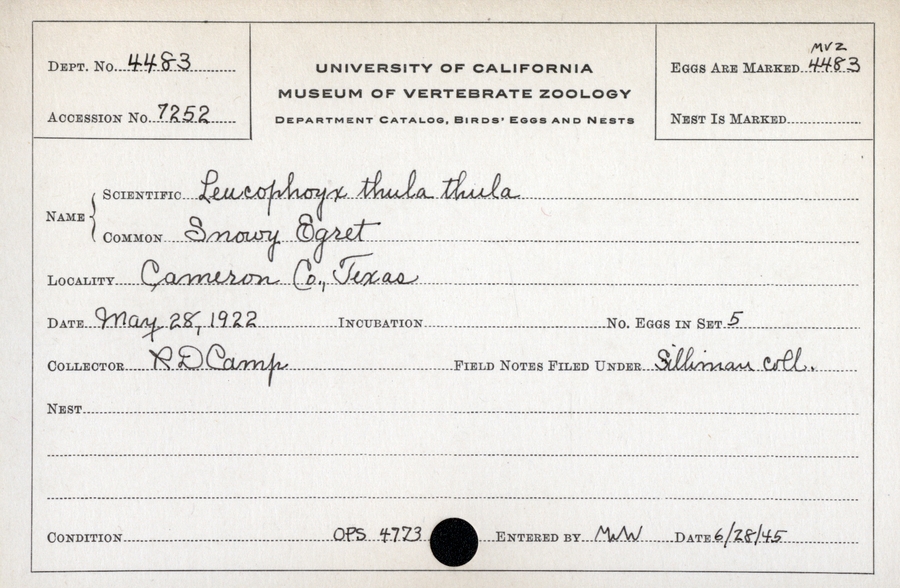 DEPT. NO. 4483
ACCESSION NO. 7252
UNIVERSITY OF CALIFORNIA
MUSEUM OF VERTEBRATE ZOOLOGY
DEPARTMENT CATALOG, BIRDS' EGGS AND NESTS
MVZ
EGGS ARE MARKED 4483
NEST IS MARKED
NAME
SCIENTIFIC Leucophoyx thula thula
COMMON Snowy Egret
LOCALITY Cameron Co., Texas
DATE May 28, 1922 INCUBATION NO. EGGS IN SET 5
COLLECTOR R D Camp FIELD NOTES FILED UNDER Silliman coll.
NEST
CONDITION OPS 4773 ENTERED BY MWW DATE 6/28/45